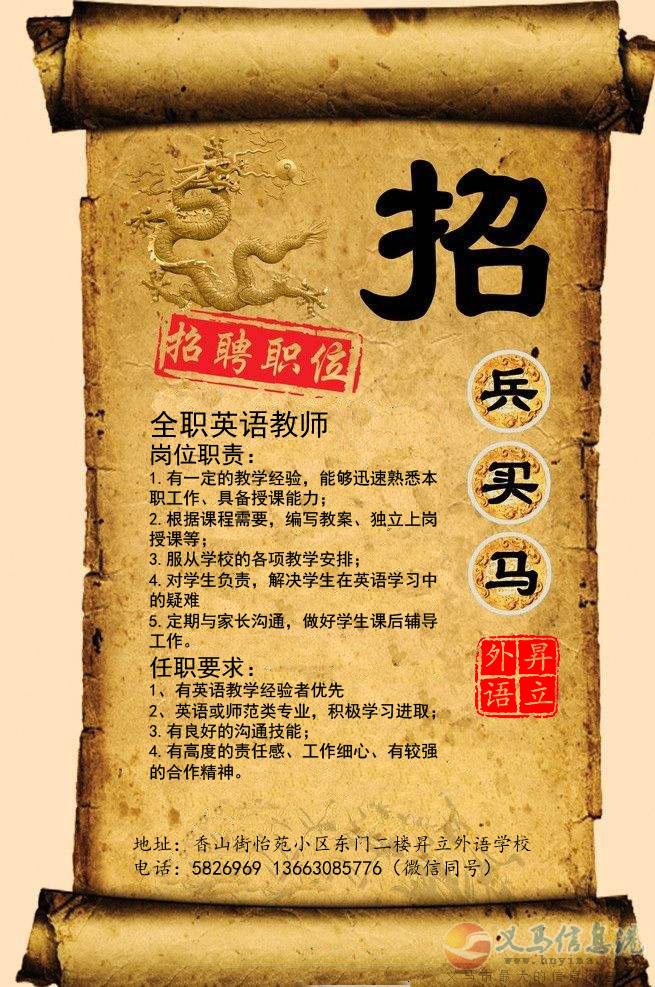 招
兵
买
马
招聘职位
全职英语教师
岗位职责：
1.有一定的教学经验，能够迅速熟悉本
职工作、具备授课能力；
2.根据课程需要，编写教案、独立上岗
授课等；
3.服从学校的各项教学安排；
4.对学生负责，解决学生在英语学习中
的疑难
5.定期与家长沟通，做好学生课后辅导
工作。
任职要求：
1、有英语教学经验者优先
2、英语或师范类专业，积极学习进取；
3.有良好的沟通技能；
4.有高度的责任感、工作细心、有较强
的合作精神。
昇立
外语
地址：香山街怡苑小区东门二楼昇立外语学校
电话：5826969 13663085776（微信同号）
义马信息港
www.hnyima.cn